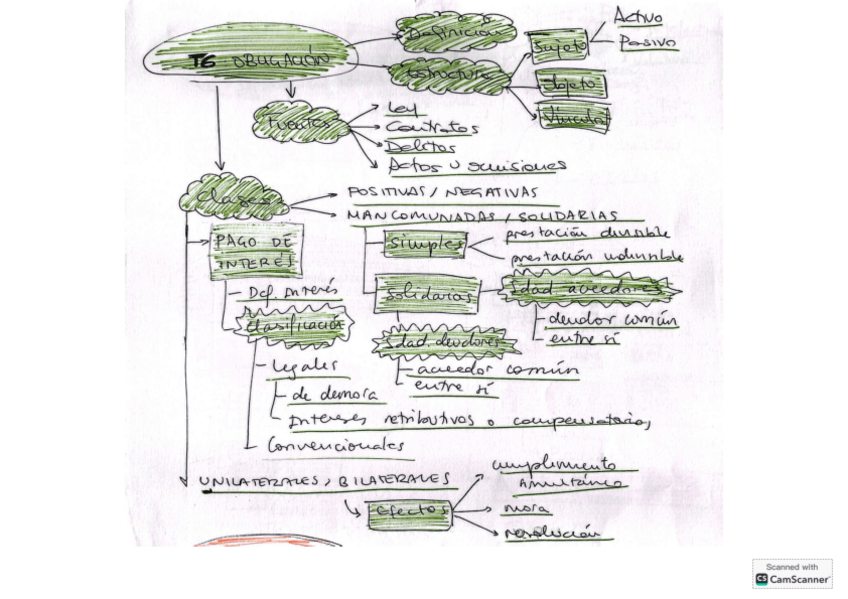 T6 OBLIGACIÓN
Definición
Estructura
Sujeto
Activo
Pasivo
Objeto
Vínculo
Fuentes
Ley
Contratos
Delitos
Actos u omisiones
Clases
POSITIVAS / NEGATIVAS
MANCOMUNADAS / SOLIDARIAS
PAGO DE
INTERÉS
Simples
prestación divisible
prestación indivisible
Def. Interés
Clasificación
Solidarias
Sdad acreedores
deudor común
entre sí
Sdad. deudores
acreedor común
entre sí
legales
de demora
Intereses retributivos o compensatorios
Convencionales
UNILATERALES / BILATERALES
Efectos
cumplimiento
simultáneo
mora
resolución
Scanned with
CS CamScanner